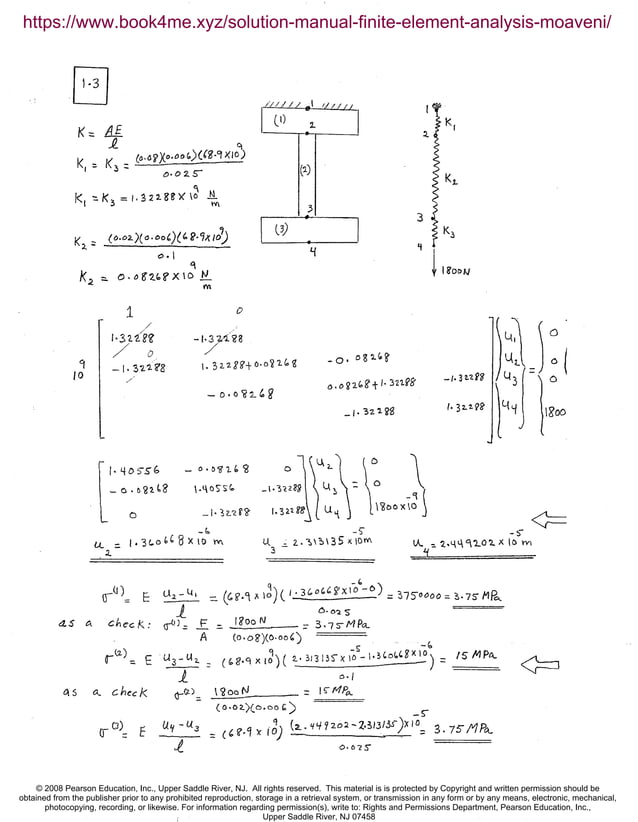 https://www.book4me.xyz/solution-manual-finite-element-analysis-moaveni/
1.3
K = AE/l
K₁ = K₃ = (0.08)(0.006)(68.9×10⁹)/0.025
K₁ = K₃ = 1.32288×10⁹ N/m
K₂ = (0.02)(0.006)(68.9×10⁹)/0.1
K₂ = 0.08268×10⁹ N/m
1
(1)
2
(2)
3
(3)
4
1
K₁
2
K₂
3
K₃
4
1800N
1 0
1.32288 -1.32288 u₁ 0
0
10⁹ -1.32288 1.32288+0.08268 -0.08268 u₂ = 0
-0.08268 0.08268+1.32288 -1.32288 u₃ 0
-1.32288 1.32288 u₄ 1800
1.40556 -0.08268 0 u₂ 0
-0.08268 1.40556 -1.32288 u₃ = 0
0 -1.32288 1.32288 u₄ 1800×10⁻⁹
u₂ = 1.360668×10⁻⁶ m u₃ = 2.313135×10⁻⁵ m u₄ = 2.449202×10⁻⁵ m
σ⁽¹⁾ = E (u₂-u₁)/l = (68.9×10⁹)(1.360668×10⁻⁶-0)/0.025 = 3750000 = 3.75 MPa
as a check: σ⁽¹⁾ = F/A = 1800N/(0.08)(0.006) = 3.75 MPa
σ⁽²⁾ = E (u₃-u₂)/l = (68.9×10⁹)(2.313135×10⁻⁵-1.360668×10⁻⁶)/0.1 = 15 MPa
as a check σ⁽²⁾ = 1800N/(0.02)(0.006) = 15 MPa
σ⁽³⁾ = E (u₄-u₃)/l = (68.9×10⁹)(2.449202-2.313135)×10⁻⁵/0.025 = 3.75 MPa
© 2008 Pearson Education, Inc., Upper Saddle River, NJ. All rights reserved. This material is is protected by Copyright and written permission should be
obtained from the publisher prior to any prohibited reproduction, storage in a retrieval system, or transmission in any form or by any means, electronic, mechanical,
photocopying, recording, or likewise. For information regarding permission(s), write to: Rights and Permissions Department, Pearson Education, Inc.,
Upper Saddle River, NJ 07458